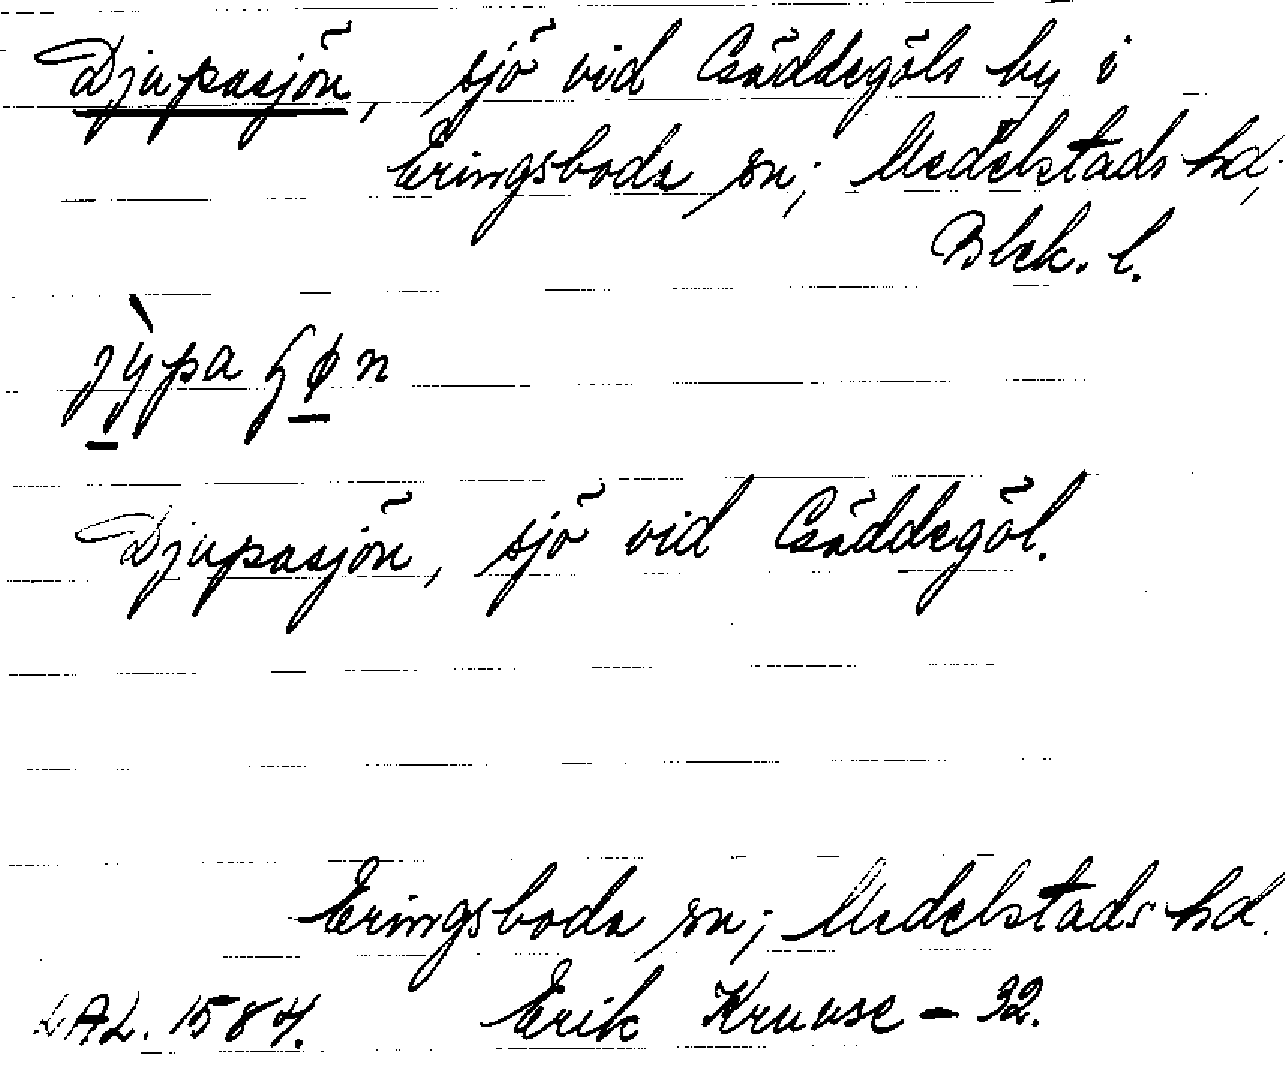 Djupasjön, sjö vid Gäddegöls by i
Eringsboda sn; Medelstads hd,
Blek. l.
Djupasjön, sjö vid Gäddegöl.
Eringsboda sn; Medelstads hd.
LAL. 1584. Erik Kruuse - 32.